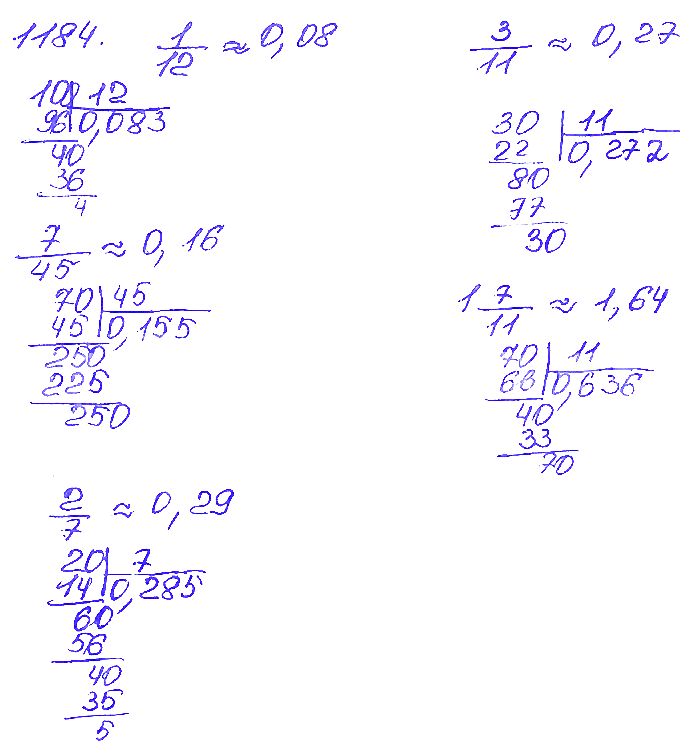 1184. 1/12 ≈ 0,08
10 12
96 0,083
40
36
4
7/45 ≈ 0,16
70 45
45 0,155
250
225
250
2/7 ≈ 0,29
20 7
14 0,285
60
56
40
35
5
3/11 ≈ 0,27
30 11
22 0,272
80
77
30
1 7/11 ≈ 1,64
70 11
66 0,636
40
33
70